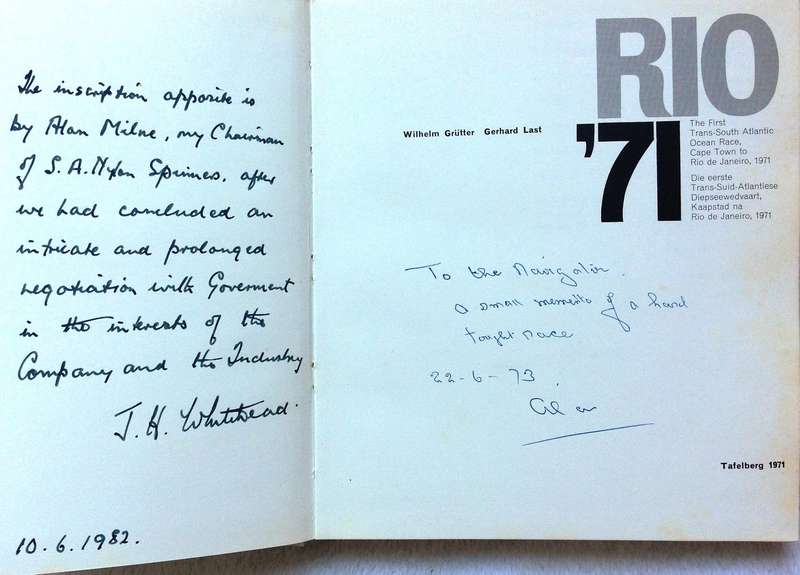 The inscription opposite is
by Alan Milne, my Chairman
of S.A. Nylon Spinners, after
we had concluded an
intricate and prolonged
negotiation with Goverment
in the interests of the
Company and the Industry
J. H. Whitehead.
10.6.1982.
RIO
'71
Wilhelm Grütter Gerhard Last
The First
Trans-South Atlantic
Ocean Race,
Cape Town to
Rio de Janeiro, 1971
Die eerste
Trans-Suid-Atlantiese
Diepseewedvaart,
Kaapstad na
Rio de Janeiro, 1971
To the Navigator.
a small memento of a hard
fought race
22-6-73.
Alan
Tafelberg 1971